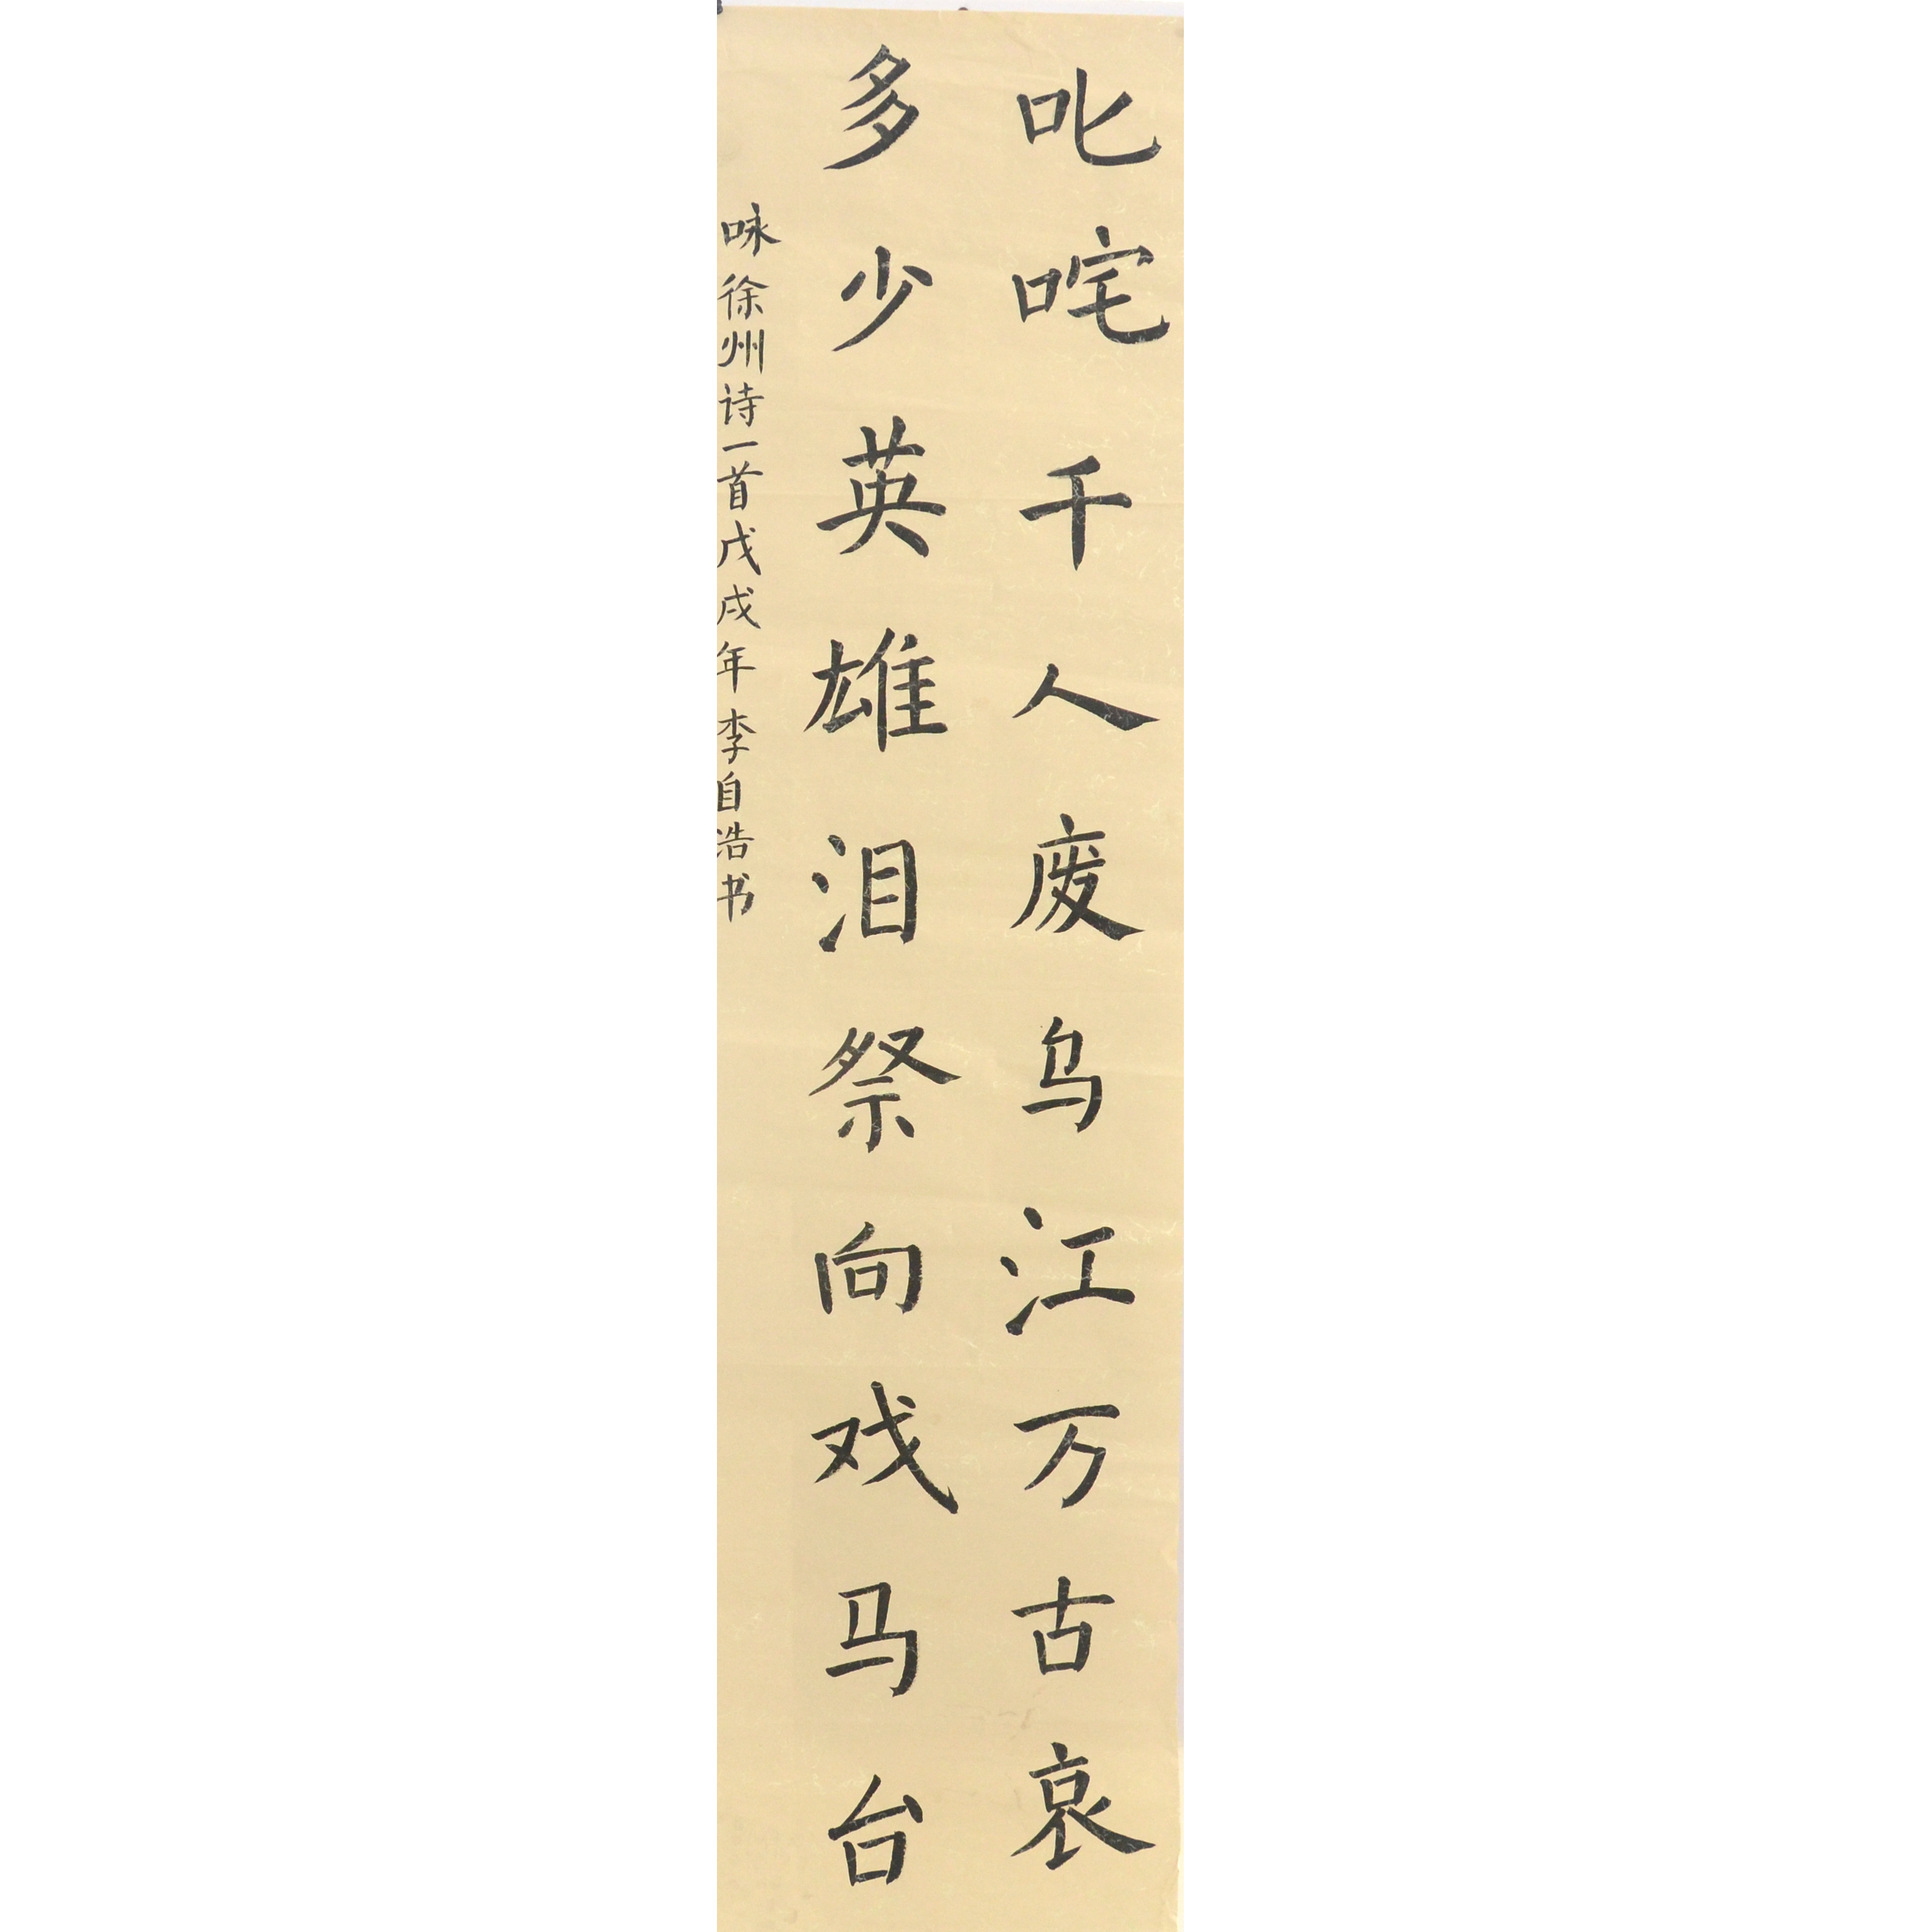 叱咤千人废乌江万古哀
多少英雄泪祭向戏马台
咏徐州诗一首戊戌年李自浩书